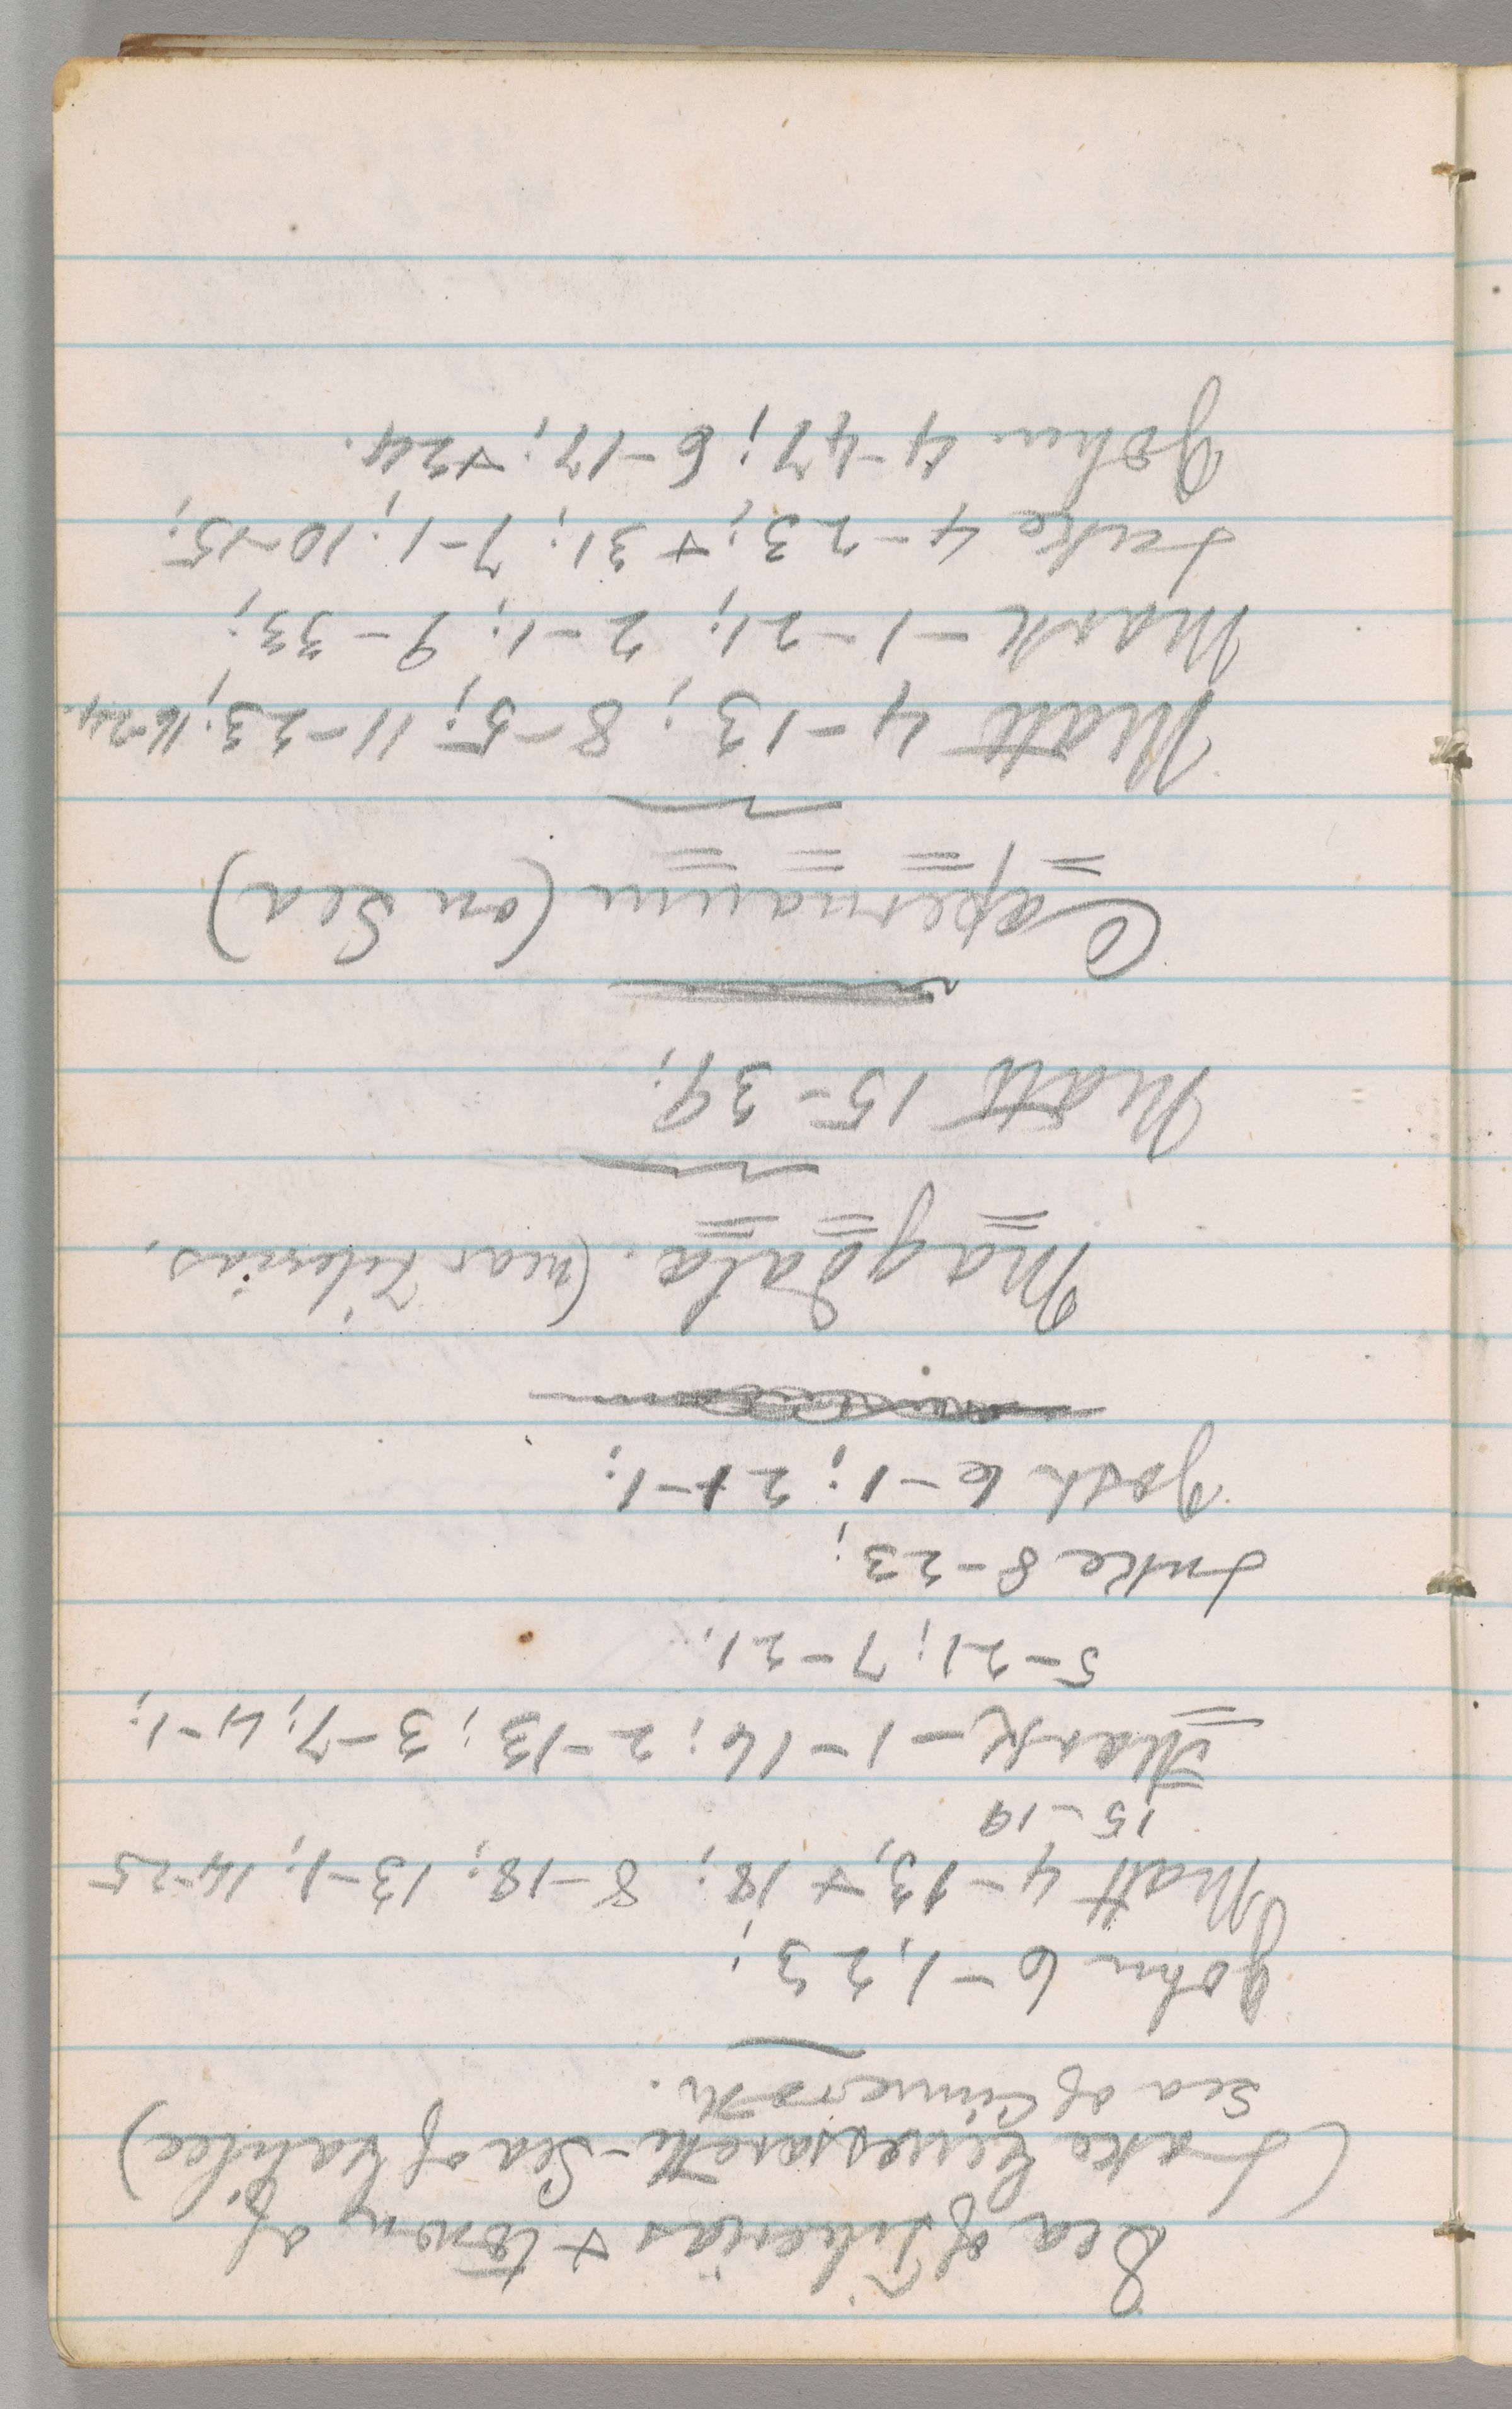 Sea of Tiberias + town of
(Lake Gennesareth - Sea of Galilee)
Sea of Cinneroth.
John 6-1, 23;
Matt 4-13, + 18; 8-18; 13-1; 14-25
15-19
Mark - 1-16; 2-13; 3-7; 4-1;
5-21; 7-21;
Luke 8-23;
Josh 6-1; 21-1;
Magdala. (near Tiberias.
Matt 15-39;
Capernaum (on Sea)
Matt 4-13; 8-5; 11-23; 16-24.
Mark - 1-21; 2-1; 9-33;
Luke 4-23; + 31; 7-1; 10-15;
John 4-47; 6-17; + 24.